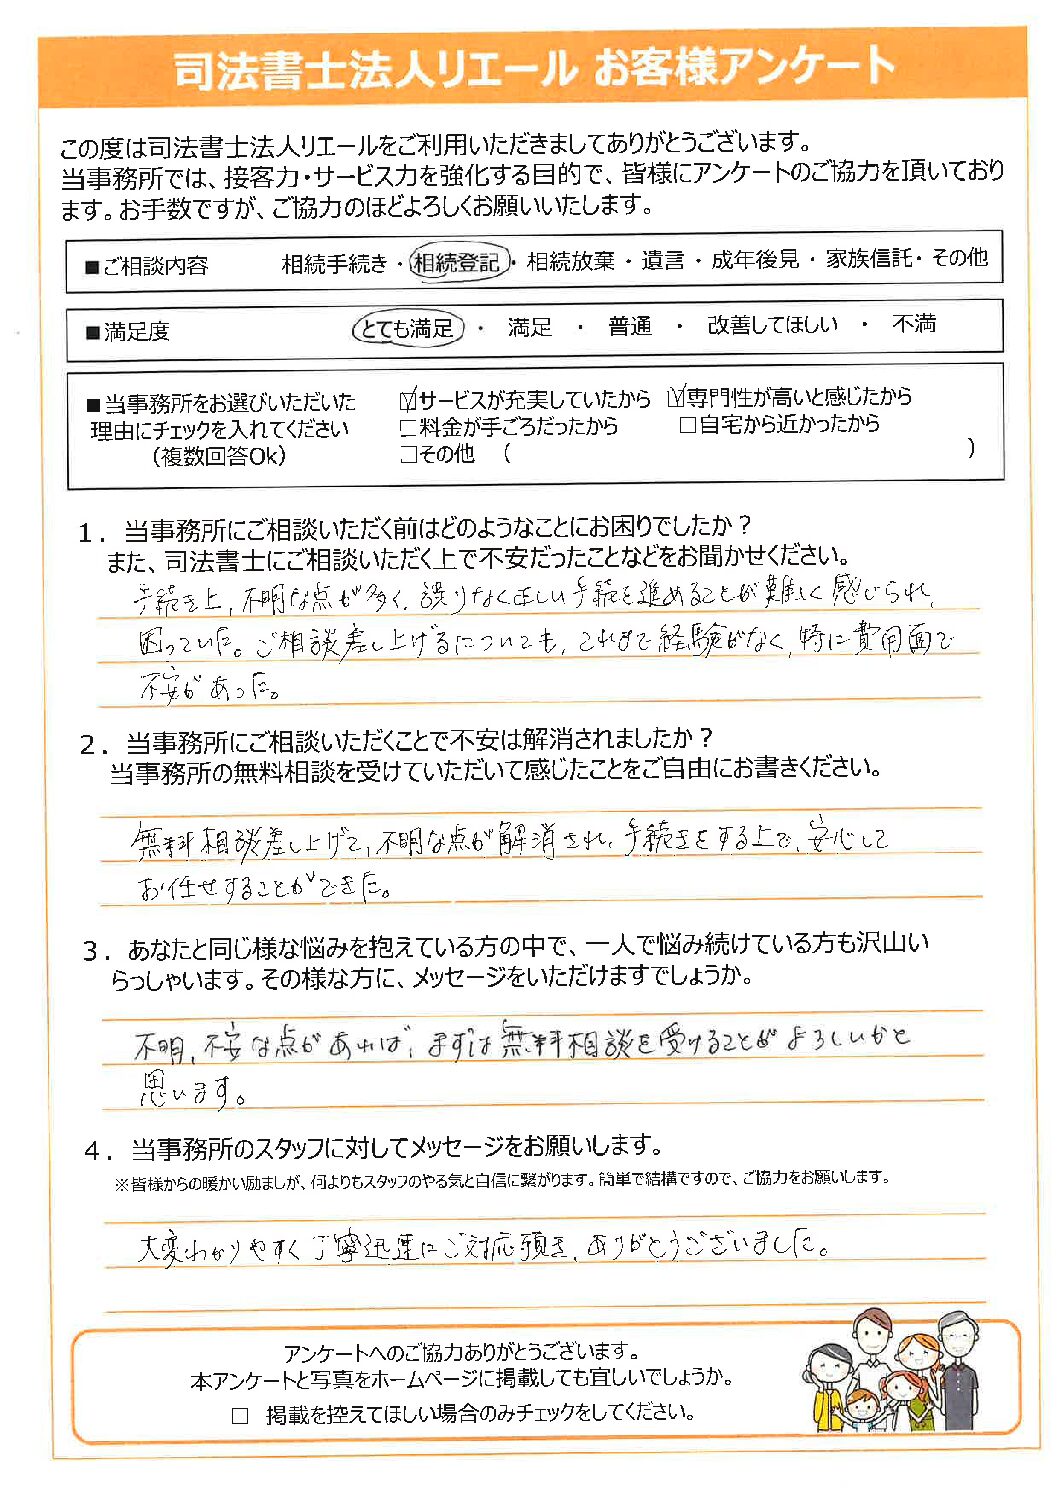 司法書士法人リエール お客様アンケート
この度は司法書士法人リエールをご利用いただきましてありがとうございます。
当事務所では、接客力・サービス力を強化する目的で、皆様にアンケートのご協力を頂いており
ます。お手数ですが、ご協力のほどよろしくお願いいたします。
■ご相談内容 相続手続き・相続登記・相続放棄・遺言・成年後見・家族信託・その他
■満足度 とても満足 ・ 満足 ・ 普通 ・ 改善してほしい ・ 不満
■当事務所をお選びいただいた ☑サービスが充実していたから ☑専門性が高いと感じたから
理由にチェックを入れてください □料金が手ごろだったから □自宅から近かったから
（複数回答Ok） □その他 （ ）
１．当事務所にご相談いただく前はどのようなことにお困りでしたか？
また、司法書士にご相談いただく上で不安だったことなどをお聞かせください。
手続き上、不明な点が多く、誤りなく正しい手続を進めることが難しく感じられ、
困っていた。ご相談差し上げるについても、これまで経験がなく、特に費用面で
不安があった。
２．当事務所にご相談いただくことで不安は解消されましたか？
当事務所の無料相談を受けていただいて感じたことをご自由にお書きください。
無料相談差し上げて、不明な点が解消され、手続きをする上で、安心して
お任せすることができた。
３．あなたと同じ様な悩みを抱えている方の中で、一人で悩み続けている方も沢山い
らっしゃいます。その様な方に、メッセージをいただけますでしょうか。
不明、不安な点があれば、まずは無料相談を受けることがよろしいかと
思います。
４．当事務所のスタッフに対してメッセージをお願いします。
※皆様からの暖かい励ましが、何よりもスタッフのやる気と自信に繋がります。簡単で結構ですので、ご協力をお願いします。
大変わかりやすく丁寧迅速にご対応頂き、ありがとうございました。
アンケートへのご協力ありがとうございます。
本アンケートと写真をホームページに掲載しても宜しいでしょうか。
□ 掲載を控えてほしい場合のみチェックをしてください。